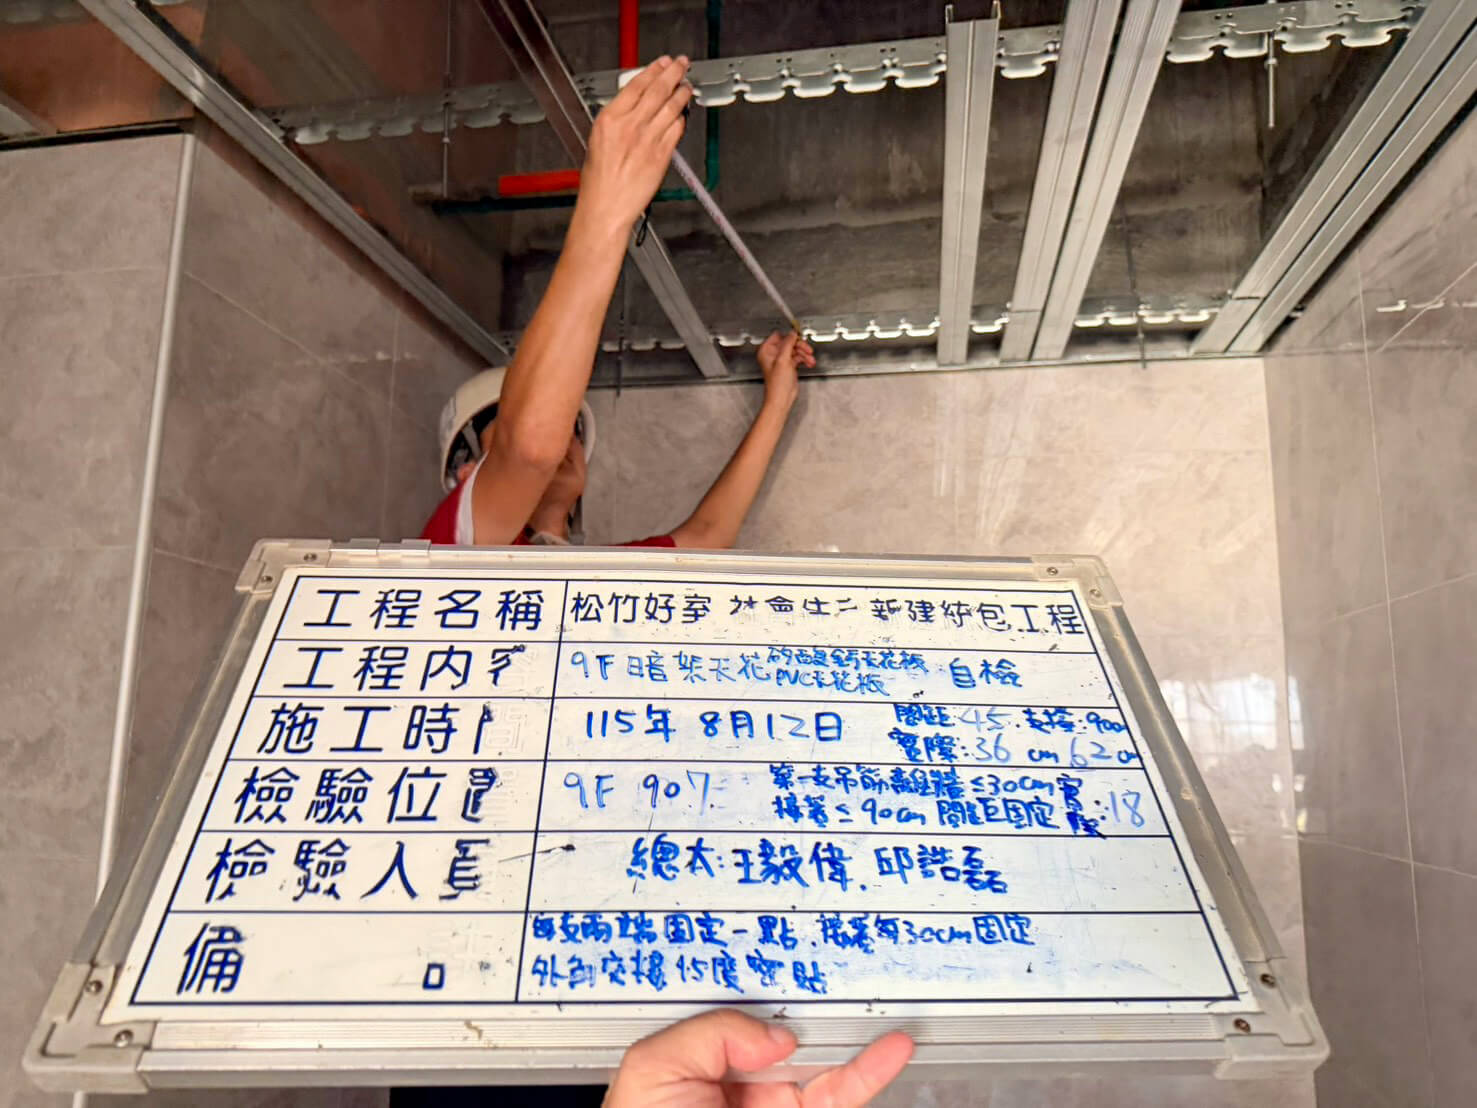 工程名稱 松竹好室 社會住宅 新建統包工程
工程內容 9F暗架天花 矽酸鈣天花板 自檢
PVC天花板
施工時 115年 8月12日 間距:45.支撐:90cm
實際:36 cm 62cm
檢驗位 9F 907 第一支吊筋離牆≤30cm 實
接著≤90cm 間距固定 際:18
檢驗人員 總太:王毅偉.邱誥磊
備 每支兩端固定一點.接著每30cm固定
外角交接45度密貼